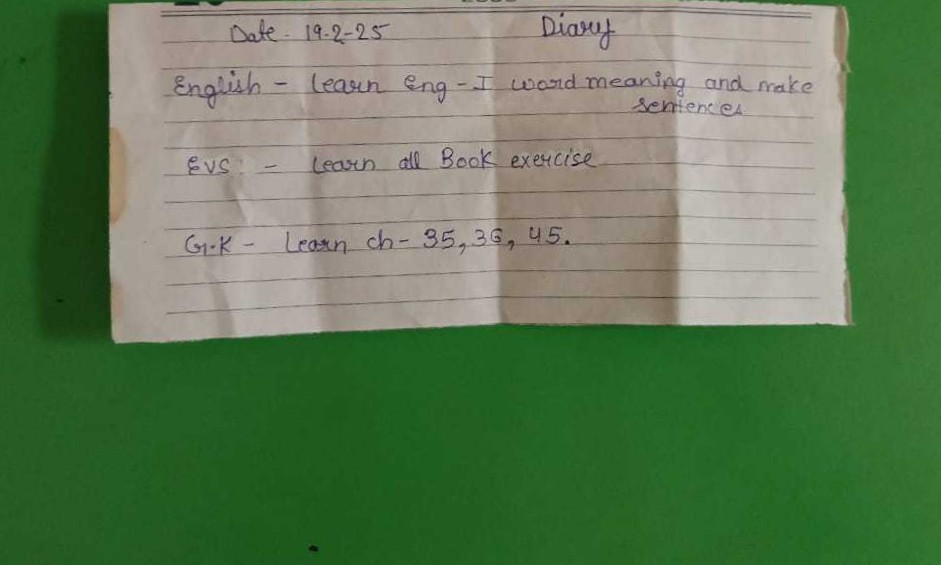 Date - 19-2-25 Diary
English - Learn Eng - I word meaning and make
sentences
EVS: - Learn all Book exercise
G.K - Learn ch - 35, 36, 45.